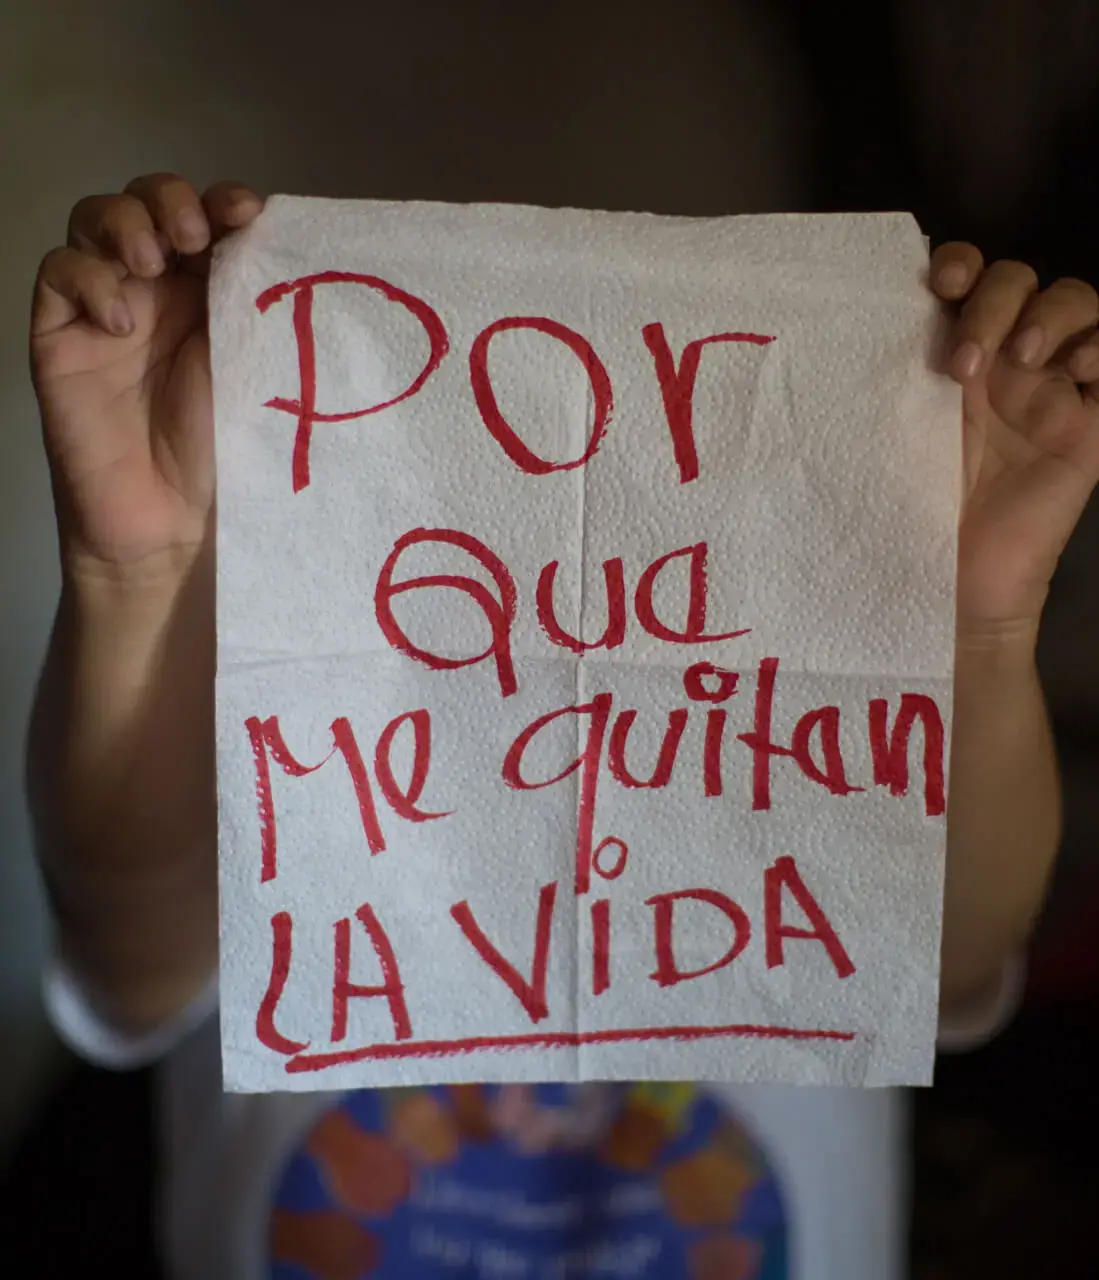 Por
Que
Me quitan
LA ViDA